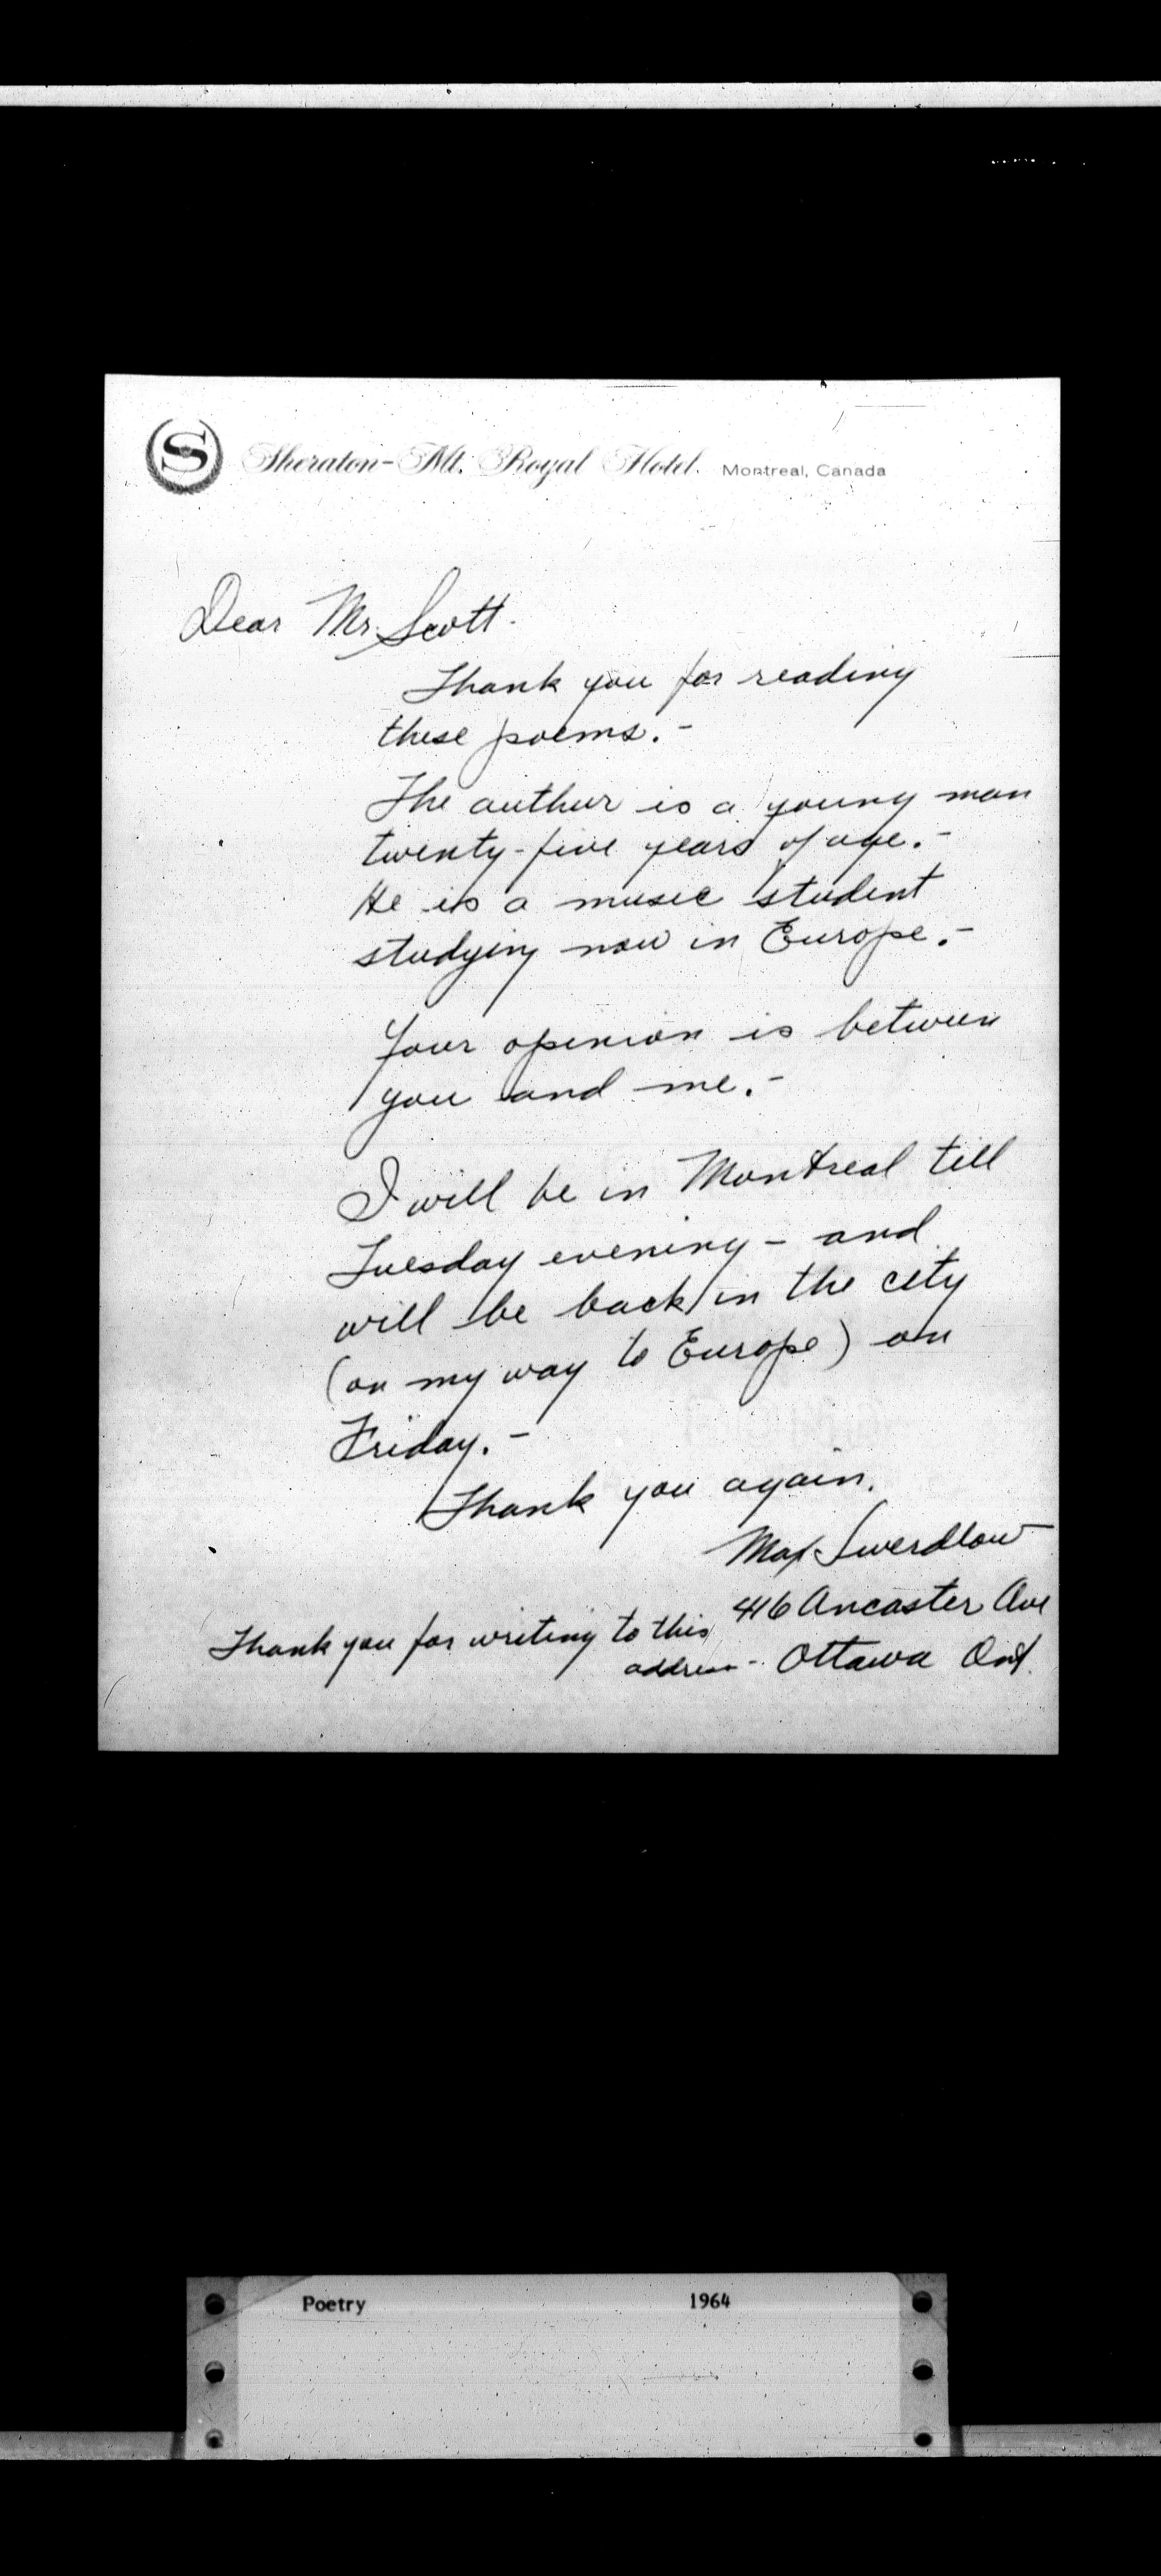 S
Sheraton-Mt. Royal Hotel. Montreal, Canada
Dear Mr. Scott.
Thank you for reading
these poems.-
The author is a young man
twenty-five years of age.-
He is a music student
studying now in Europe.-
Your opinion is between
you and me.-
I will be in Montreal till
Tuesday evening - and
will be back in the city
(on my way to Europe) on
Friday.-
Thank you again.
Max Swerdlow
416 Ancaster Ave
Ottawa Ont.
Thank you for writing to this
address -
Poetry 1964